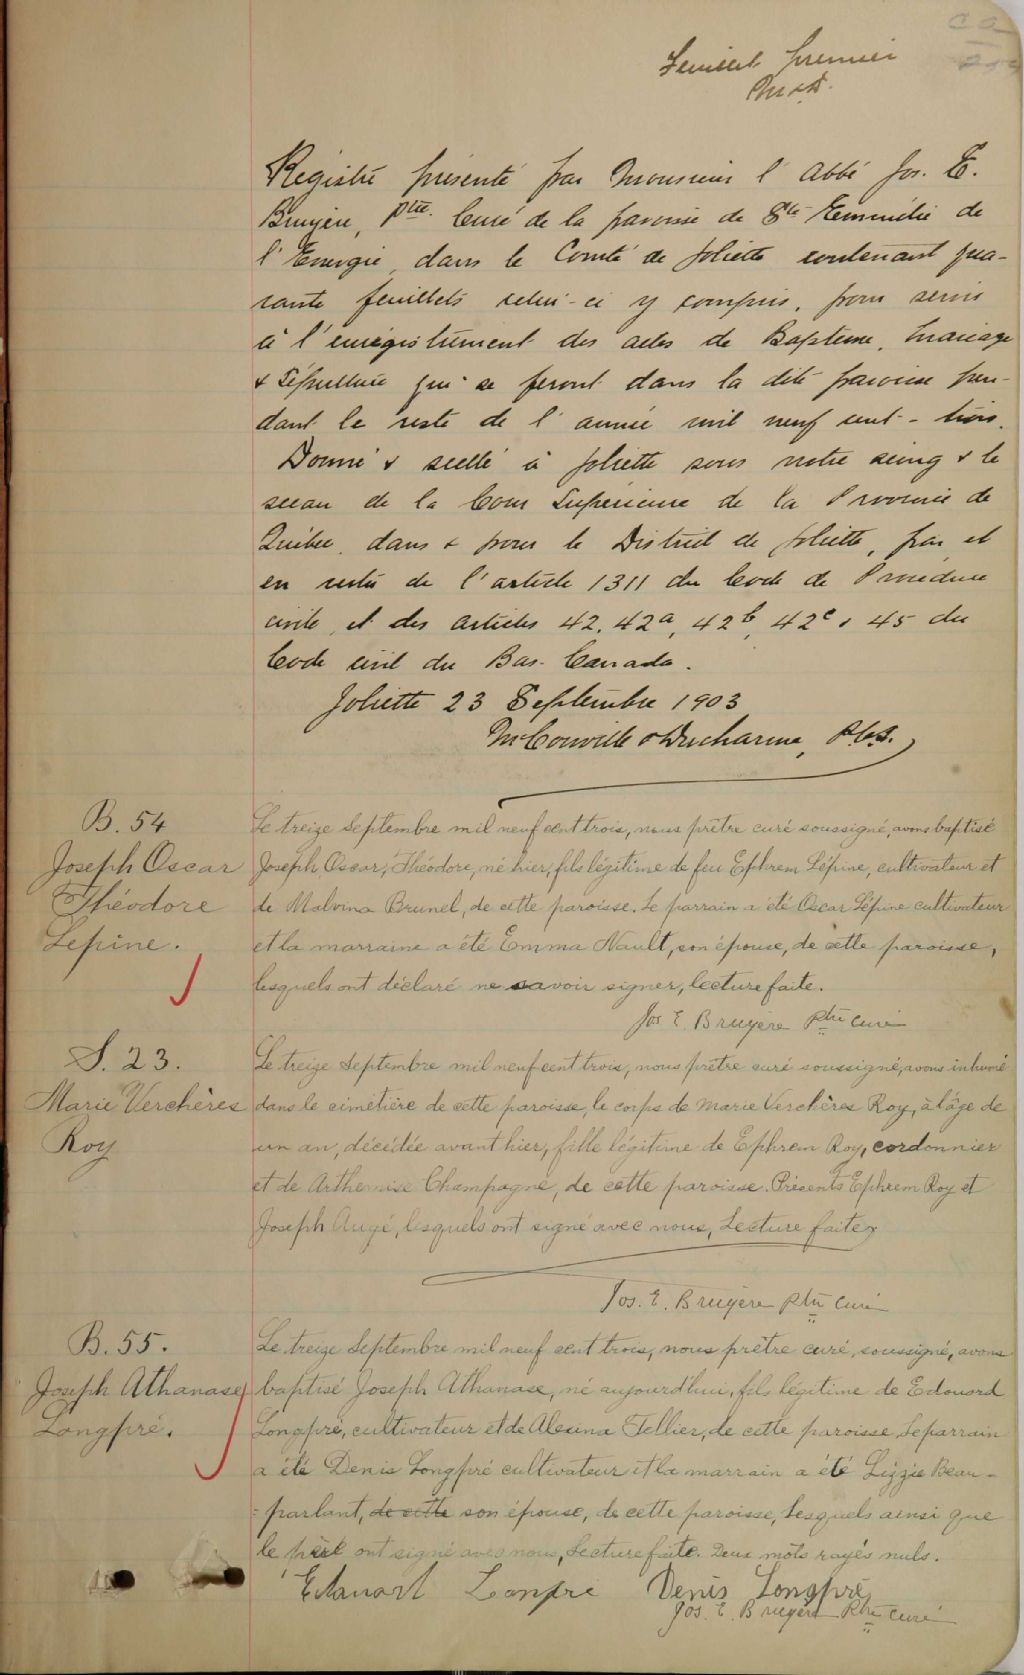 Feuillet premier
McxD.
Régistre présenté par Monsieur l'Abbé Jos. E.
Bruyère, Ptre. Curé de la paroisse de Ste Emmélie de
l'Energie, dans le Comté de Joliette contenant qua-
rante feuillets celui-ci y compris, pour servir
à l'enrégistrement des actes de Baptême, Mariage
& Sépulture qui se feront dans la dite paroisse pen-
dant le reste de l'année mil neuf cent-trois.
Donné & scellé à Joliette sous notre seing & le
sceau de la Cour Supérieure de la Province de
Québec, dans & pour le District de Joliette, par et
en vertu de l'article 1311 du Code de Procédure
civile, et des articles 42, 42a, 42b, 42c, 45 du
Code civil du Bas-Canada.
Joliette 23 Septembre 1903
McConville & Ducharme, P.C.S.
B. 54
Joseph Oscar
Théodore
Lépine.
Le treize Septembre mil neuf cent trois, nous prêtre curé soussigné, avons baptisé
Joseph Oscar, Théodore, né hier, fils légitime de feu Ephrem Lépine, cultivateur et
de Malvina Brunel, de cette paroisse. Le parrain a été Oscar Lépine cultivateur
et la marraine a été Emma Nault, son épouse, de cette paroisse,
lesquels ont déclaré ne savoir signer, lecture faite.
Jos E. Bruyère Ptre curé
S. 23.
Marie Verchères
Roy
Le treize Septembre mil neuf cent trois, nous prêtre curé soussigné, avons inhumé
dans le cimetière de cette paroisse, le corps de Marie Verchères Roy, à l'âge de
un an, décédée avant hier, fille légitime de Ephrem Roy, cordonnier
et de Arthemise Champagne, de cette paroisse. Présents Ephrem Roy et
Joseph Augé, lesquels ont signé avec nous, Lecture faite
Jos. E. Bruyère Ptre Curé
B. 55.
Joseph Athanase
Longpré.
Le treize Septembre mil neuf cent trois, nous prêtre curé, soussigné, avons
baptisé Joseph Athanase, né aujourd'hui, fils légitime de Edouard
Longpré, cultivateur et de Alexina Tellier, de cette paroisse, Le parrain
a été Denis Longpré cultivateur et la marrain a été Lizzie Beau-
parlant, de cette son épouse, de cette paroisse, Lesquels ainsi que
le père ont signé avec nous, Lecture faite. Deux mots rayés nuls.
Edouart Lonpré Denis Longpré
Jos. E. Bruyère Ptre curé